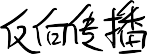 反向传播